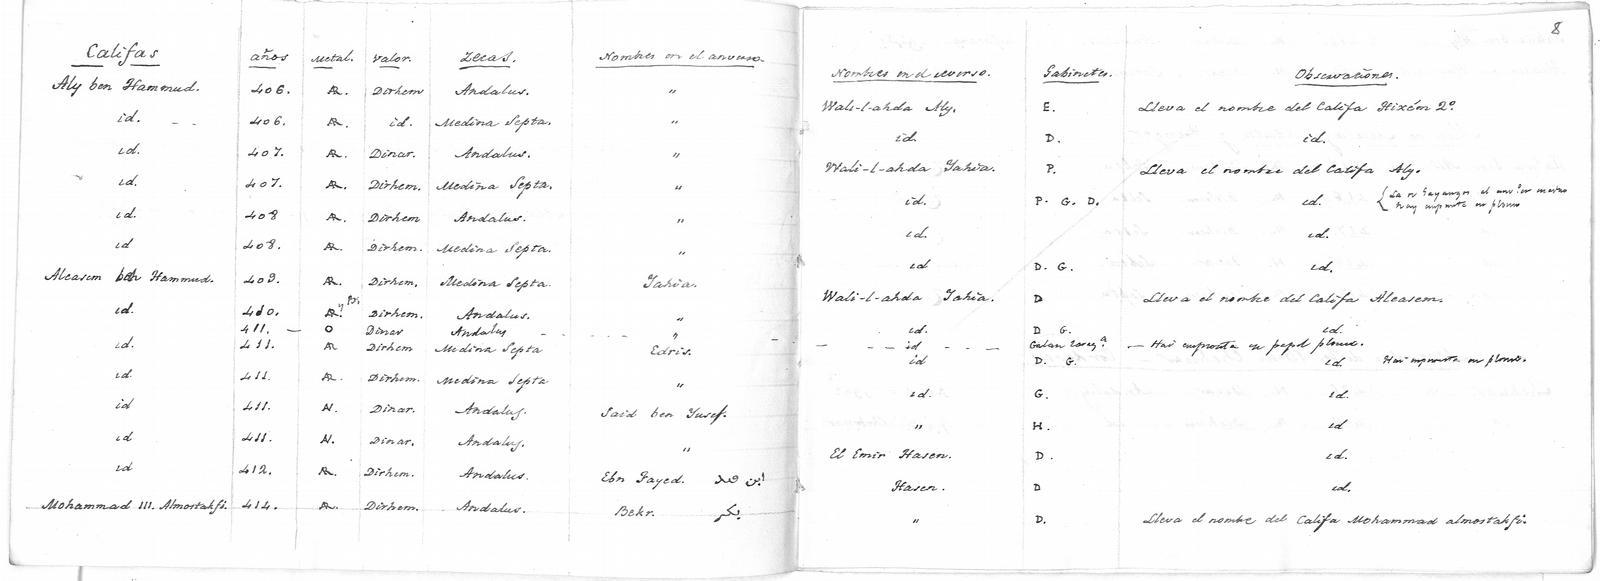 8
Califas años Metal. Valor. Zecas. Nombres en el anverso. Nombres en el reverso. Gabinetes. Observaciones.
Aly ben Hammud. 406. Æ. Dirhem Andalus. " Wali-l-ahda Aly. E. Lleva el nombre del Califa Hixém 2º
id. 406. Æ. id. Medina Septa. " id. D. id.
id. 407. Æ. Dinar. Andalus. " Wali-l-ahda Iahia. P. Lleva el nombre del Califa Aly.
id. 407. Æ. Dirhem. Medina Septa. " id. P. G. D. id.
id. 408 Æ. Dirhem Andalus. " id. id.
id 408. Æ. Dirhem. Medina Septa. " id D. G. id.
Alcasem ben Hammud. 409. Æ. Dirhem. Medina Septa Iahia. Wali-l-ahda Iahia. D Lleva el nombre del Califa Alcasem.
id. 410. Æ. Dirhem. Andalus. " id. D G. id.
411. — O Dinar Andalus " id — Hai empronta en papel plomo.
id. 411. Æ Dirhem Medina Septa Edris. id D. G. id. Hai empronta en plomo.
id 411. Æ. Dirhem. Medina Septa " id. G. id.
id 411. N. Dinar. Andalus. Said ben Iusef. " H. id
id 411. N. Dinar. Andalus. " El Emir Hasen. D. id.
id 412. Æ. Dirhem. Andalus. Ebn Fayed. Hasen. D id.
Mohammad III. Almostakfi. 414. Æ. Dirhem. Andalus. Bekr. بكر " D. Lleva el nombre del Califa Mohammad almostakfi.